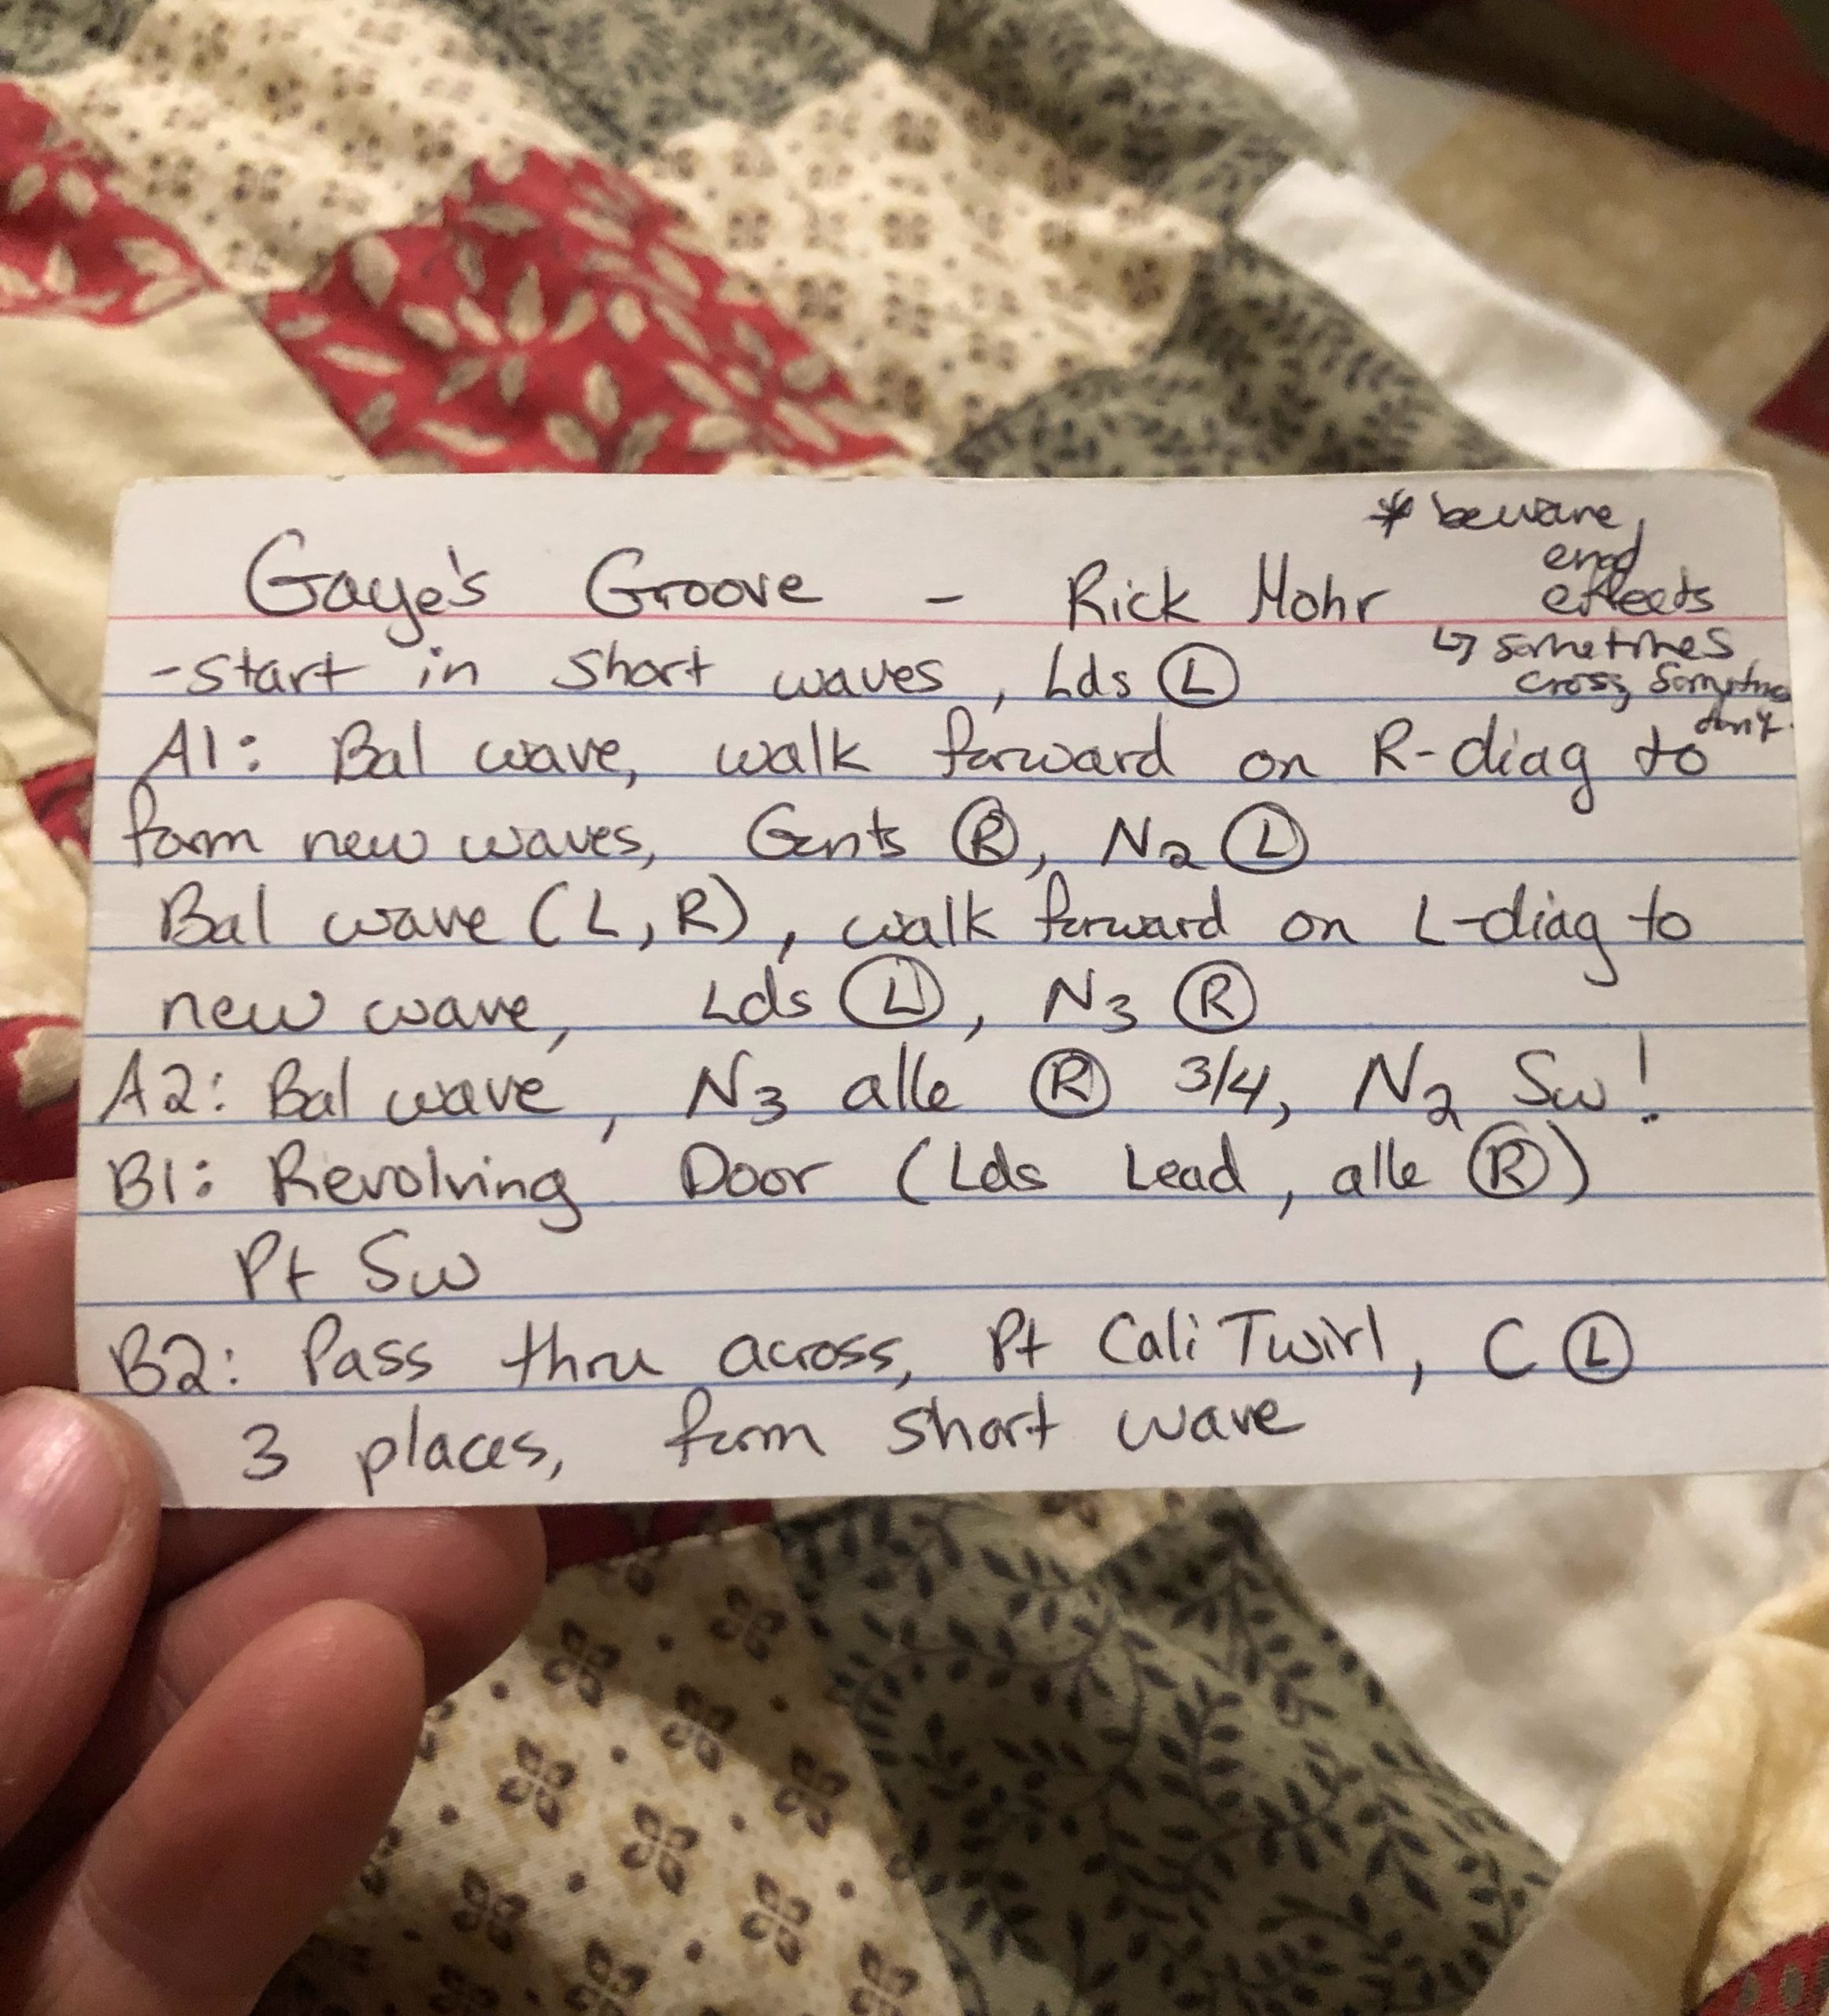 * beware,
end
effects
↳ sometimes
cross, sometimes
don't
Gaye's Groove - Rick Mohr
-start in short waves, Lds Ⓛ
A1: Bal wave, walk forward on R-diag to
form new waves, Gents Ⓡ, N2 Ⓛ
Bal wave (L, R), walk forward on L-diag to
new wave, Lds Ⓛ, N3 Ⓡ
A2: Bal wave, N3 alle Ⓡ 3/4, N2 Sw!
B1: Revolving Door (Lds Lead, alle Ⓡ)
Pt Sw
B2: Pass thru across, Pt Cali Twirl, C Ⓛ
3 places, form short wave